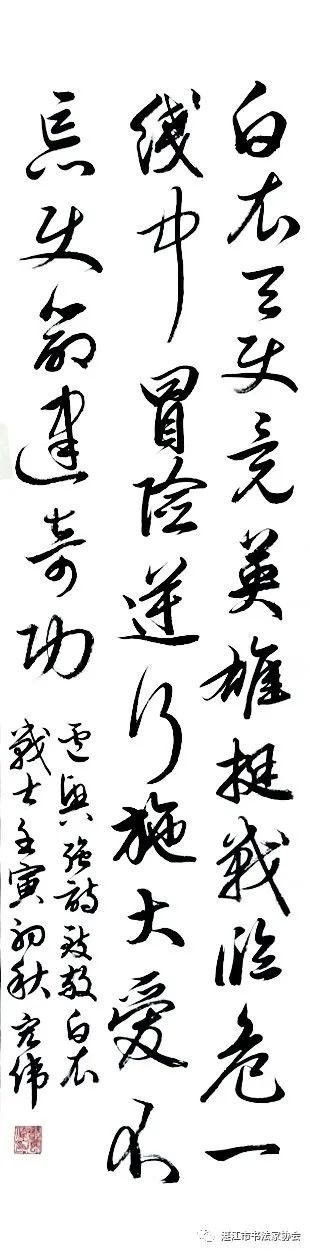 白衣天使竞英雄挺戰临危一
綫中冒险逆行施大愛不
忘使命建奇功
興强詩致敬白衣
戰士壬寅初秋宏伟
湛江市书法家协会